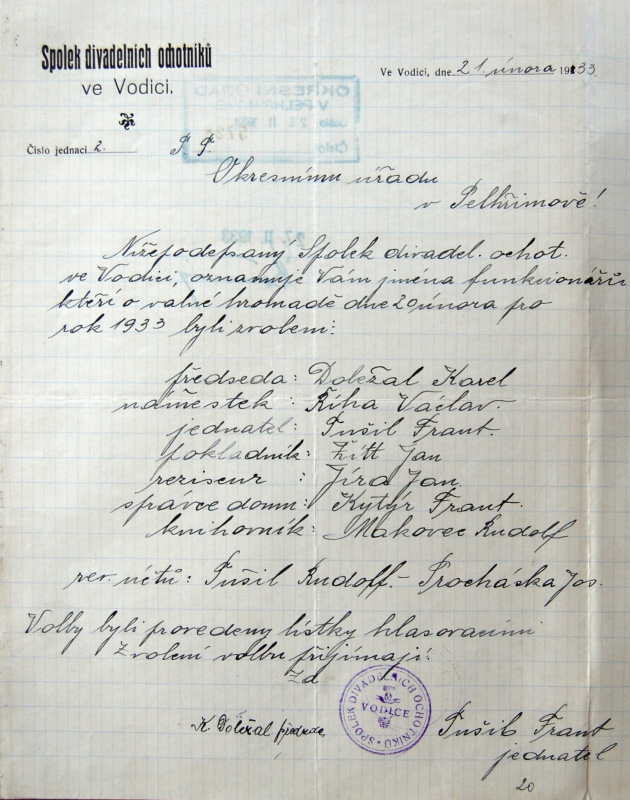 Spolek divadelních ochotníků
ve Vodici.
Ve Vodici, dne 21. února 1933
Číslo jednací 2.
P. T.
Okresnímu úřadu
v Pelhřimově!
Nížepodepsaný Spolek divadel. ochot.
ve Vodici, oznamuje Vám jména funkcionářů
kteří o valné hromadě dne 20 února pro
rok 1933 byli zvoleni:
předseda: Doležal Karel
náměstek: Říha Václav.
jednatel: Pušil Frant.
pokladník: Žitt Jan
reziseur : Jíra Jan.
správce domu: Kytýr Frant.
knihovník: Makovec Rudolf
rev. účtů: Pušil Rudolf. - Procháska Jos.
Volby byli provedeny lístky hlasovacími
Zvolení volbu přijímají:
Za
SPOLEK DIVADELNÍCH OCHOTNÍKŮ
VODICE
K. Doležal předseda
Pušil Frant
jednatel
20
OKRESNÍ ÚŘAD
V PELHŘIMOVĚ
Došlo 28. II. 1933
Číslo
27. II. 1933